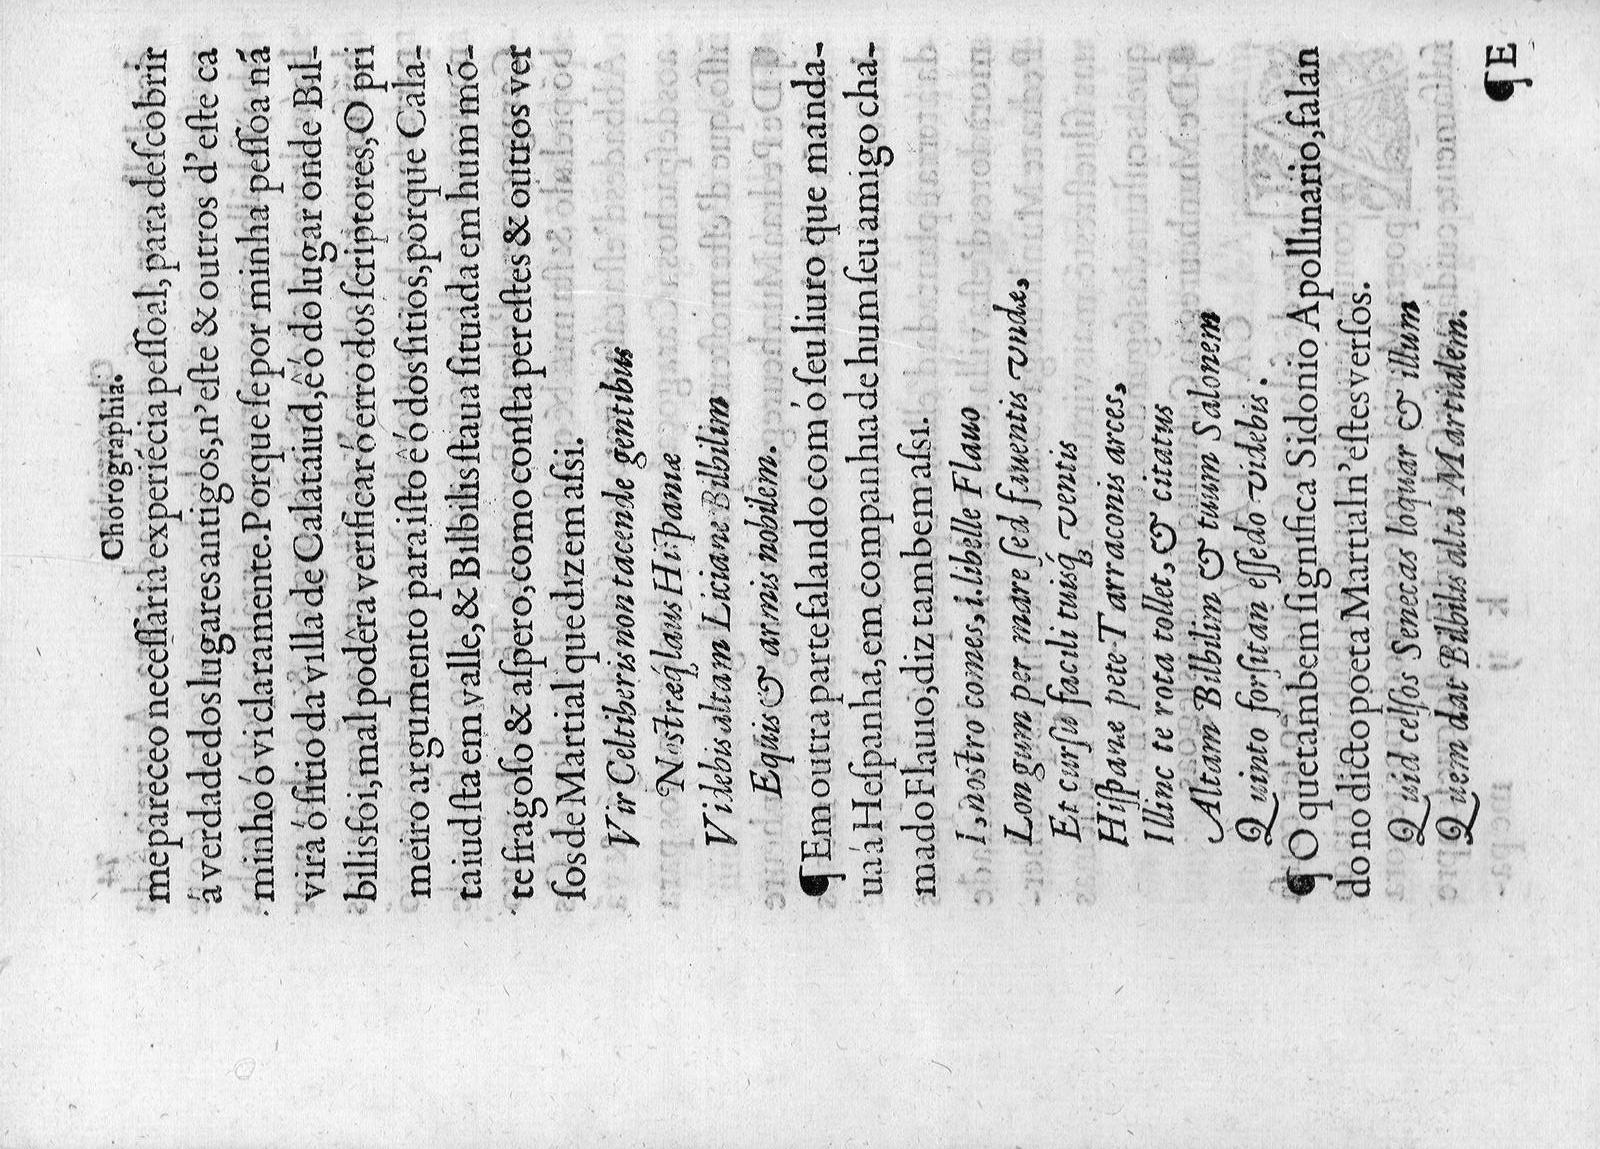 Chorographia.
me pareceo neceſſaria experiécia peſſoal, para deſcobrir
á verdade dos lugares antigos, n'eſte & outros d'eſte ca
minho ó vi claramente. Porque ſe por minha peſſoa ná
vira ó ſitio da villa de Calataiud, é ó do lugar onde Bil-
bilis foi, mal podêra verificar ó erro dos ſcriptores, O pri
meiro argumento para iſto é ó dos ſitios, porque Cala-
taiud ſta em valle, & Bilbilis ſtaua ſituada em hum mó-
te fragoſo & aſpero, como conſta per eſtes & outros ver
ſos de Martial que dizem aſsi.
Vir Celtiberis non tacende gentibus
Nostræq́ laus Hiſpaniæ
Videbis altam Liciane Bilbilim
Equis & armis nobilem.
¶ Em outra parte falando com ó ſeu liuro que manda-
ua á Heſpanha, em companhia de hum ſeu amigo cha-
mado Flauio, diz tambem aſsi.
I, nostro comes, i. libelle Flauo
Longum per mare ſed fauentis vndæ,
Et curſu facili tuisq́ ventis
Hiſpanæ pete Tarraconis arces,
Illinc te rota tollet, & citatus
Altam Bilbilim & tuum Salonem
Quinto forſitan eſſedo videbis.
¶ O que tambem ſignifica Sidonio Apollinario, falan
do no dicto poeta Martial n'eſtes verſos.
Quid celſos Senecas loquar & illum
Quem dat Bilbilis alta Martialem.
¶ E